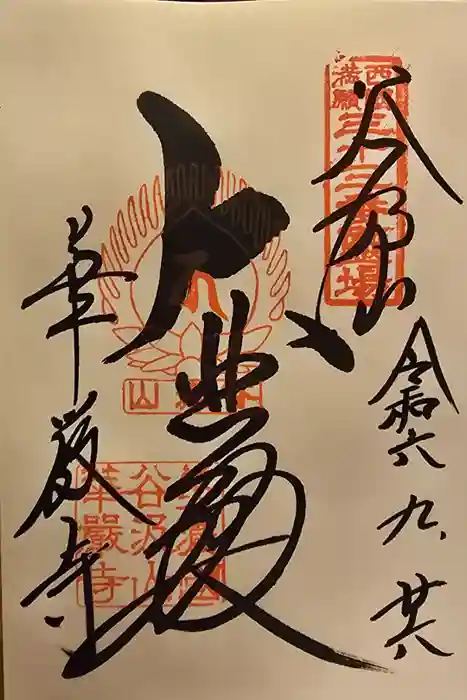 西国
満願
三十三番霊場
谷汲山
令和六
九、
廿八
大悲殿
華厳寺
美濃國
谷汲山
華嚴寺